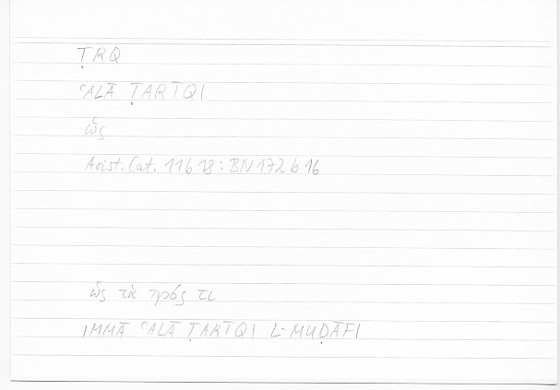 ṬRQ
ʿALĀ ṬARĪQI
ὡς
Arist. Cat. 11b18 : BN 172b16
ὡς τὰ πρός τι
IMMĀ ʿALĀ ṬARĪQI L-MUḌĀFI